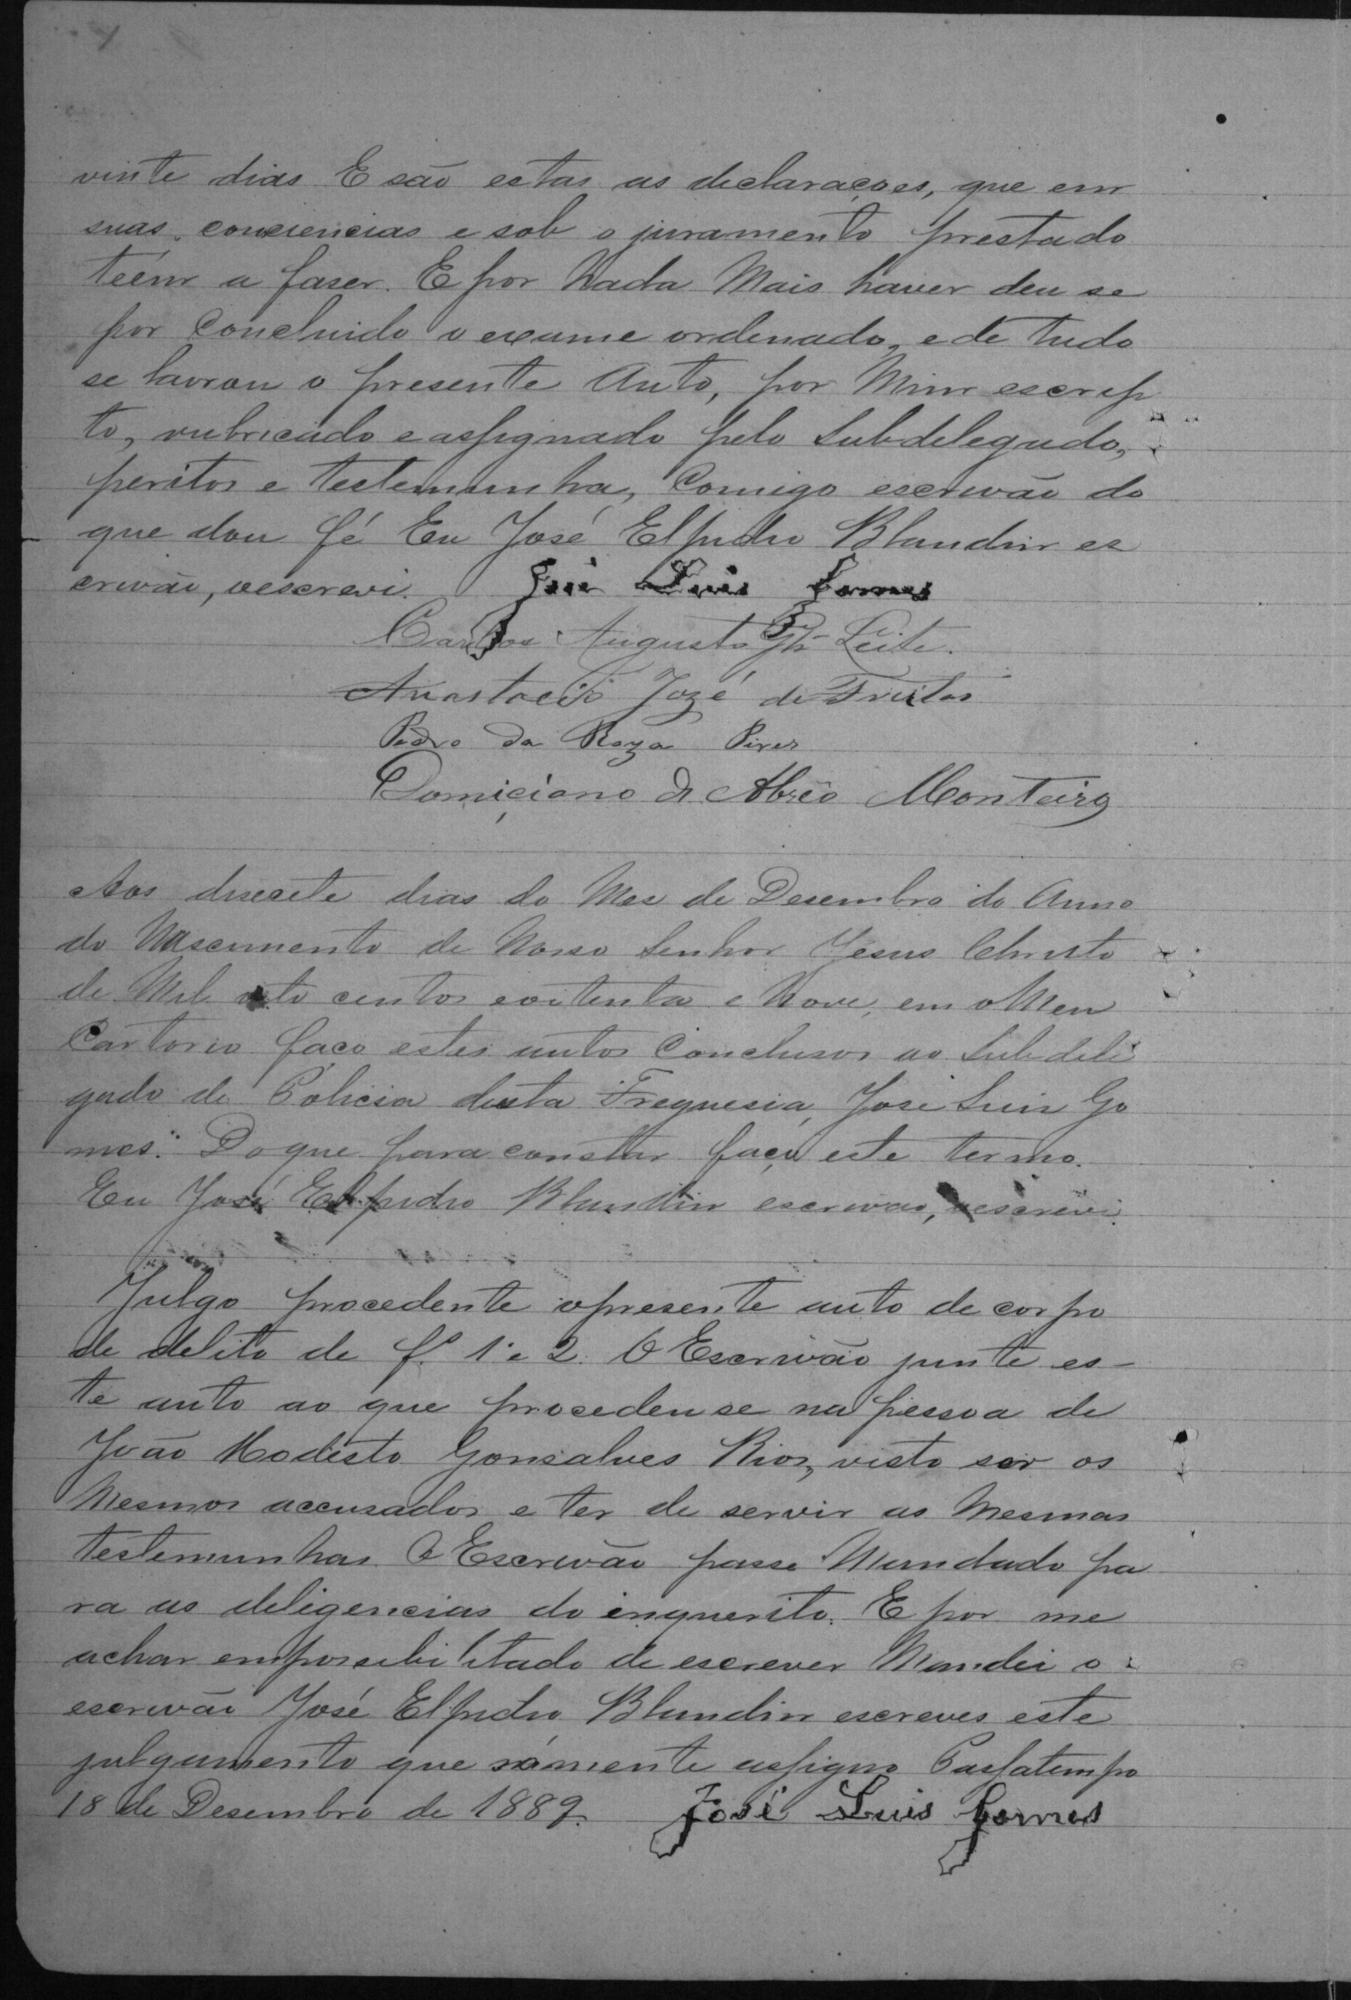 vinte dias E são estas as declarações, que em
suas conciencias e sob o juramento prestado
teém a faser. E por Nada Mais haver deu se
por Concluido o exame ordenado, e de tudo
se lavrou o presente Auto, por Mim escrip
to, rubricado e assignado pelo Subdelegado,
peritos e testemunha, Comigo escrivão do
que dou fé Eu José Elpidio Blandin es
crivão, o escrevi. José Luis Gomes
Carlos Augusto Leite.
Anastacio Jozé de Freitas
Pedro da Roza Pires
Domiciano de Abrêo Monteiro
Aos desecete dias do Mes de Desembro do Anno
do Nascimento de Nosso Senhor Jesus Christo
de Mil oito centos e oitenta e Nove, em o Meu
Cartorio faço estes autos Conclusos ao Subdele
gado de Policia desta Freguesia, José Luis Go
mes. Do que para constar faço este termo.
Eu José Elpidio Blandin escrivão, o escrevi.
Julgo procedente o presente auto de corpo
de delito de f. 1 e 2. O Escrivão junte es-
te auto ao que procedeu se na pessoa de
João Modesto Gonsalves Rios, visto ser os
Mesmos accusados e ter de servir as Mesmas
testemunhas O Escrivão passe Mandado pa
ra as deligencias do enquerito. E por me
achar empossibilitado de escrever Mandei o
escrivão José Elpidio Blandin escrever este
julgamento que sómente assigno Passatempo
18 de Desembro de 1889. José Luis Gomes